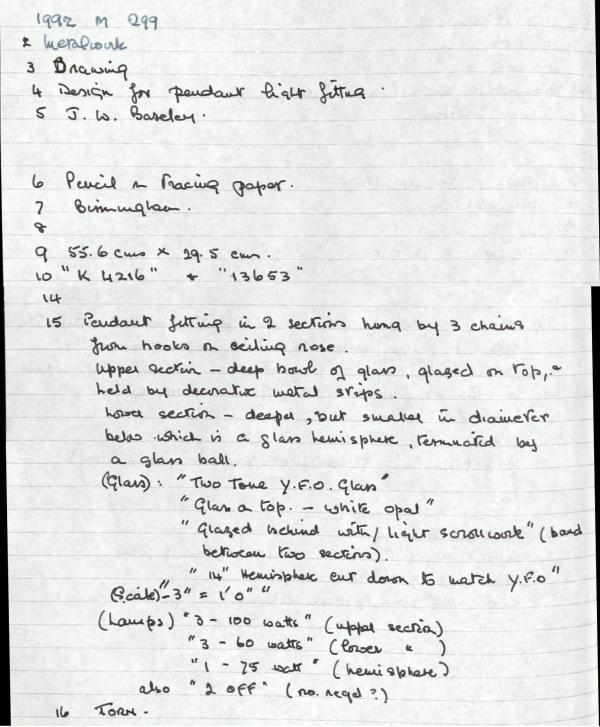 1992 M 299
2 Metalwork
3 Drawing
4 Design for pendant light fitting.
5 J. W. Baseley.
6 Pencil on Tracing paper.
7 Birmingham.
8
9 55.6 cms × 29.5 cms.
10 "K 4216" + "13653"
14
15 Pendant fitting in 2 sections hung by 3 chains
from hooks on ceiling rose.
Upper section - deep bowl of glass, glazed on top, &
held by decorative metal strips.
Lower section - deeper, but smaller in diameter
below which is a glass hemisphere, terminated by
a glass ball.
(Glass): "Two Tone Y.F.O. Glass"
"Glass on top. - white opal"
"Glazed behind with / light scrollwork" (band
between two sections).
"14" Hemisphere cut down to match Y.F.O"
(Scale) - "3" = 1'0""
(Lamps) "3 - 100 watts" (upper section)
"3 - 60 watts" (lower " )
"1 - 75 watt" (hemisphere)
also "2 off" (no. reqd?)
16 TORN.